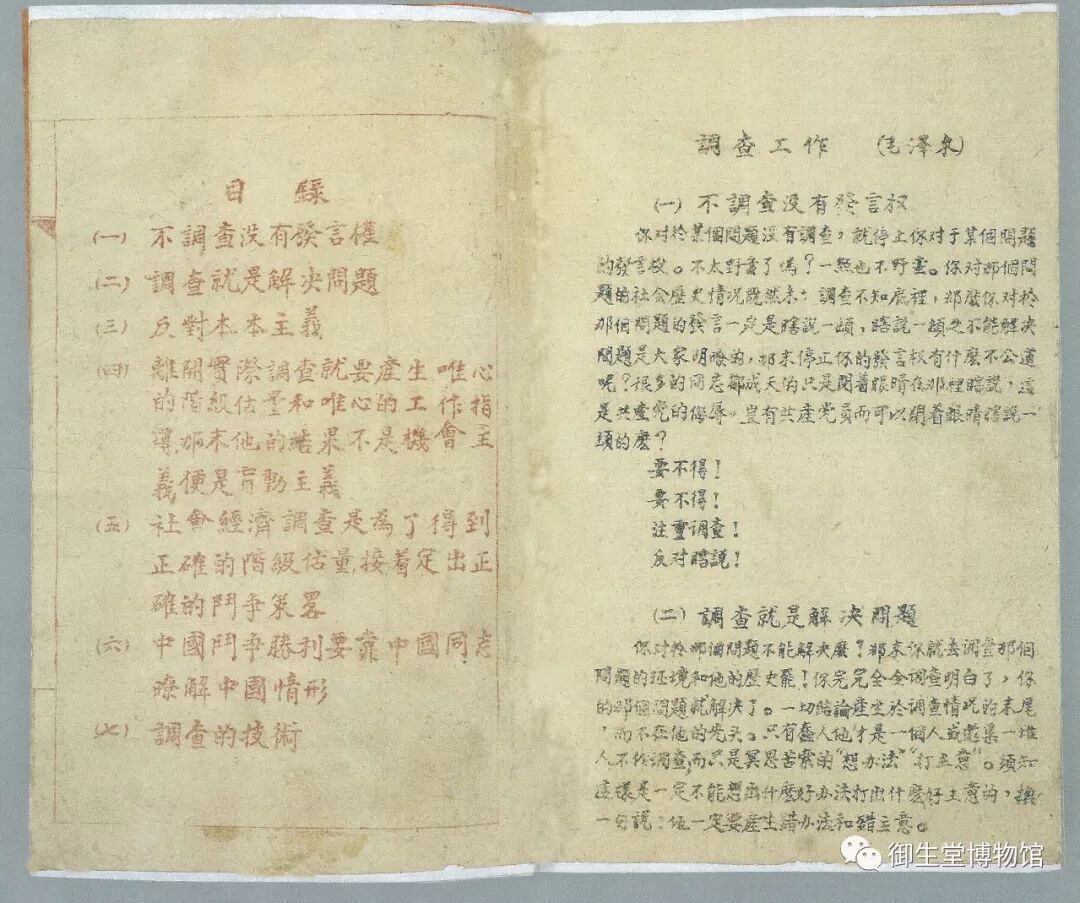 目錄
(一) 不調查没有發言權
(二) 調查就是解决問題
(三) 反對本本主義
(四) 離開實際調查就要產生唯心
的階級估量和唯心的工作指
導,那末他的結果不是機會主
義便是盲動主義
(五) 社會經濟調查是為了得到
正確的階級估量,接着定出正
確的鬥爭策畧
(六) 中國鬥爭勝利要靠中國同志
瞭解中國情形
(七) 調查的技術
調查工作 (毛澤東)
(一) 不調查没有發言权
你对於某個問題没有調查，就停止你对于某個問題
的發言权。不太野蛮了嗎？一點也不野蛮。你对那個問
題的社会歷史情况既然未調查不知底裡，那麼你对於
那個問題的發言一定是瞎説一頓，瞎説一頓之不能解决
問題是大家明瞭的，那末停止你的發言权有什麼不公道
呢？很多的同志都成天的只是閉着眼睛在那裡瞎説，這
是共產党的侮辱。豈有共產党員而可以閉着眼睛瞎説一
頓的麼？
要不得！
要不得！
注重调查！
反对瞎説！
(二) 調查就是解决問題
你对於那個問題不能解决麼？那末你就去調查那個
問題的环境和他的歷史罷！你完完全全調查明白了，你
的那個問題就解决了。一切結論產生於調查情况的末尾
，而不在他的先头。只有蠢人他才是一個人或邀集一堆
人不作調查，而只是冥思苦索的“想办法”“打主意”。须知
這樣是一定不能想出什麼好办法打出什麼好主意的，換
一句説：他一定要產生錯办法和錯主意。
御生堂博物馆